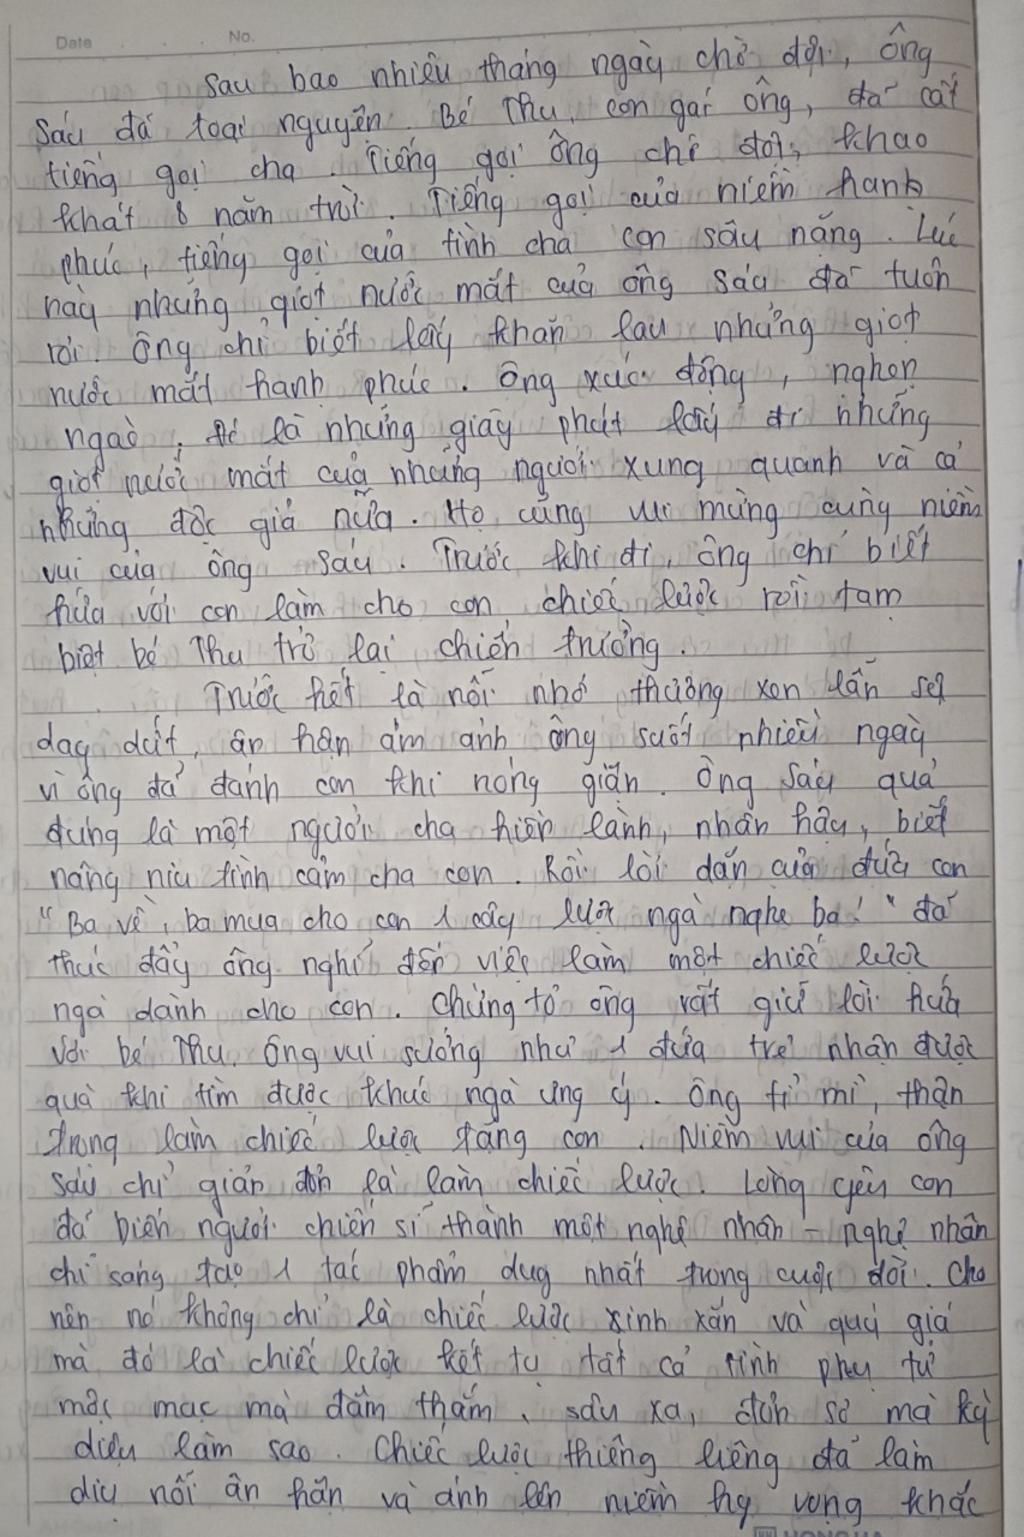 Date No.
Sau bao nhiêu tháng ngày chờ đợi, ông
Sáu đã toại nguyện. Bé Thu, con gái ông, đã cất
tiếng gọi cha. Tiếng gọi ông chờ đợi, khao
khát 8 năm trời. Tiếng gọi của niềm hạnh
phúc, tiếng gọi của tình cha con sâu nặng. Lúc
này những giọt nước mắt của ông Sáu đã tuôn
rơi. Ông chỉ biết lấy khăn lau những giọt
nước mắt hạnh phúc. Ông xúc động, nghẹn
ngào. Đó là những giây phút lấy đi những
giọt nước mắt của những người xung quanh và cả
những độc giả nữa. Họ cũng vui mừng cùng niềm
vui của ông Sáu. Trước khi đi, ông chỉ biết
hứa với con làm cho con chiếc lược rồi tạm
biệt bé Thu trở lại chiến trường.
Trước hết là nỗi nhớ thương xen lẫn sự
day dứt, ân hận ám ảnh ông suốt nhiều ngày
vì ông đã đánh con khi nóng giận. Ông Sáu quả
đúng là một người cha hiền lành, nhân hậu, biết
nâng niu tình cảm cha con. Rồi lời dặn của đứa con
"Ba về, ba mua cho con 1 cây lược ngà nghe ba!" đã
thúc đẩy ông nghĩ đến việc làm một chiếc lược
ngà dành cho con. Chứng tỏ ông rất giữ lời hứa
với bé Thu. Ông vui sướng như 1 đứa trẻ nhận được
quà khi tìm được khúc ngà ưng ý. Ông tỉ mỉ, thận
trọng làm chiếc lược tặng con. Niềm vui của ông
Sáu chỉ giản đơn là làm chiếc lược. Lòng yêu con
đã biến người chiến sĩ thành một nghệ nhân - nghệ nhân
chỉ sáng tạo 1 tác phẩm duy nhất trong cuộc đời. Cho
nên nó không chỉ là chiếc lược xinh xắn và quý giá
mà đó là chiếc lược kết tụ tất cả tình phụ tử
mộc mạc mà đằm thắm, sâu xa, đơn sơ mà kỳ
diệu làm sao. Chiếc lược thiêng liêng đã làm
dịu nỗi ân hận và ánh lên niềm hy vọng khắc